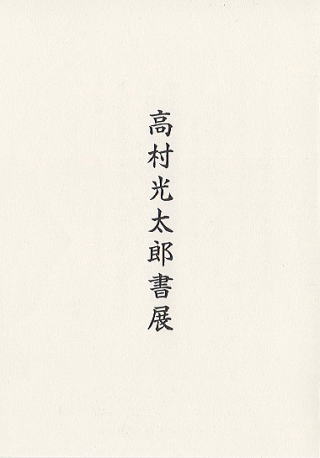 高村光太郎書展